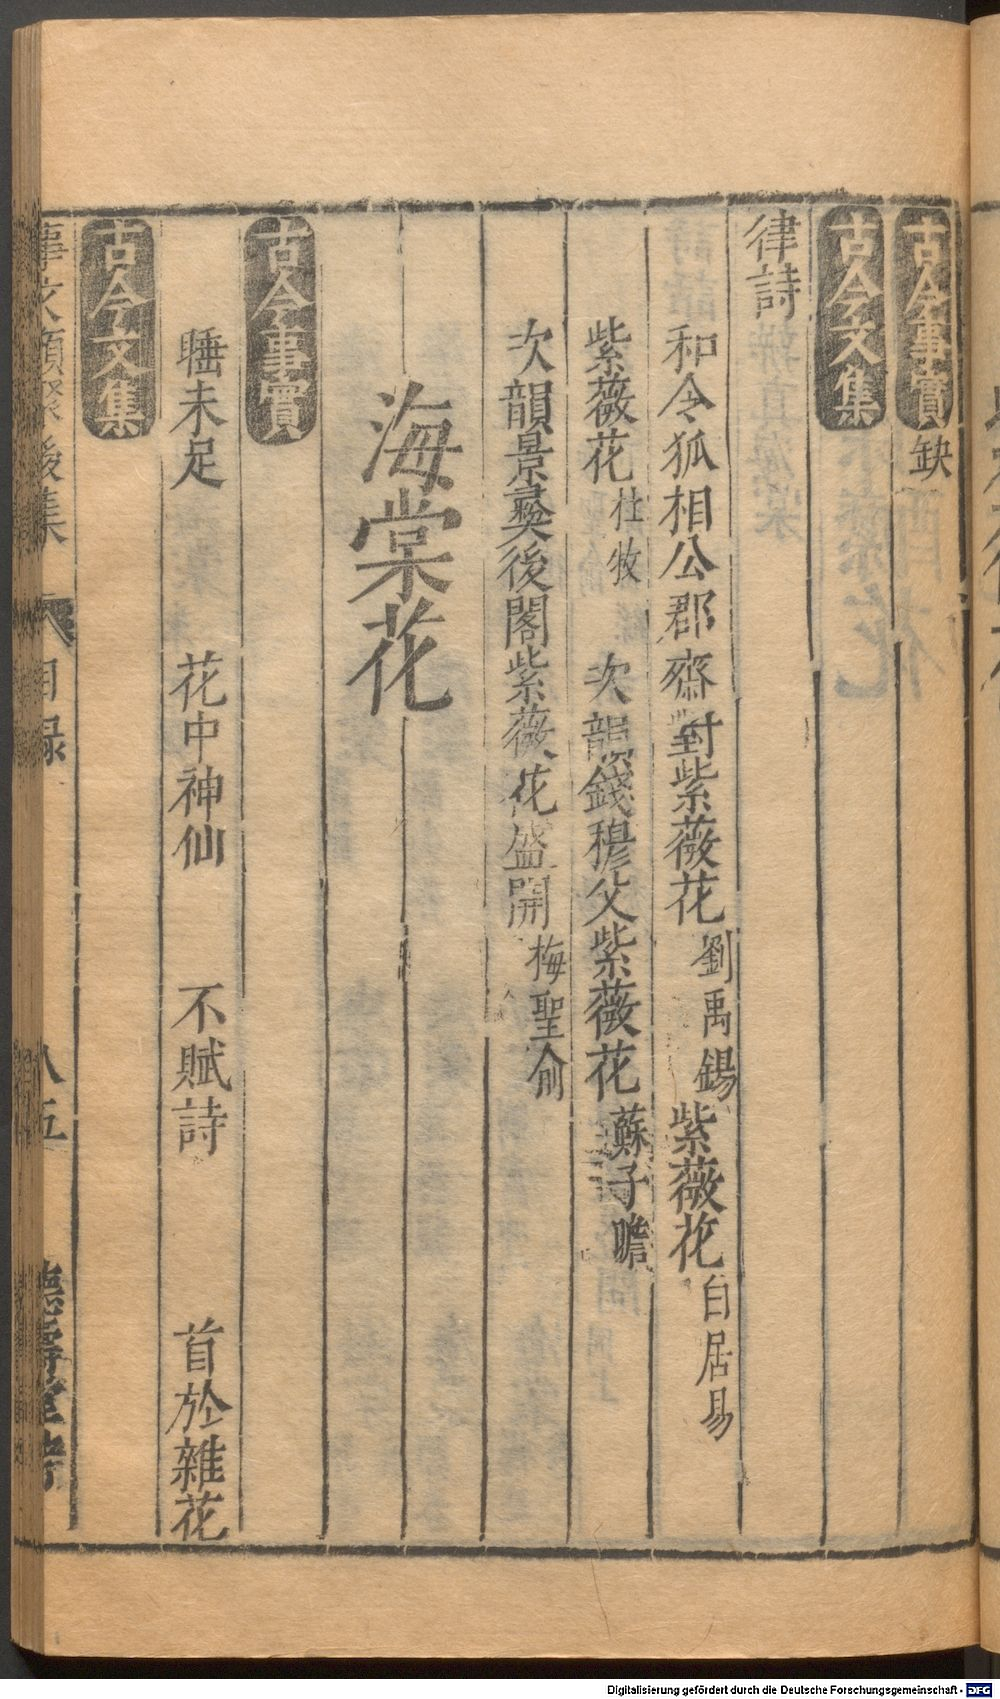 古今事實 缺
古今文集
律詩
和令狐相公郡齋對紫薇花 劉禹錫 紫薇花 白居易
紫薇花 杜牧 次韻錢穆父紫薇花 蘇子瞻
次韻景彞後閣紫薇花盛開 梅聖俞
海棠花
古今事實
睡未足 花中神仙 不賦詩 首於雜花
古今文集
事文類聚後集 目録 八五 德壽堂梓
Digitalisierung gefördert durch die Deutsche Forschungsgemeinschaft - DFG